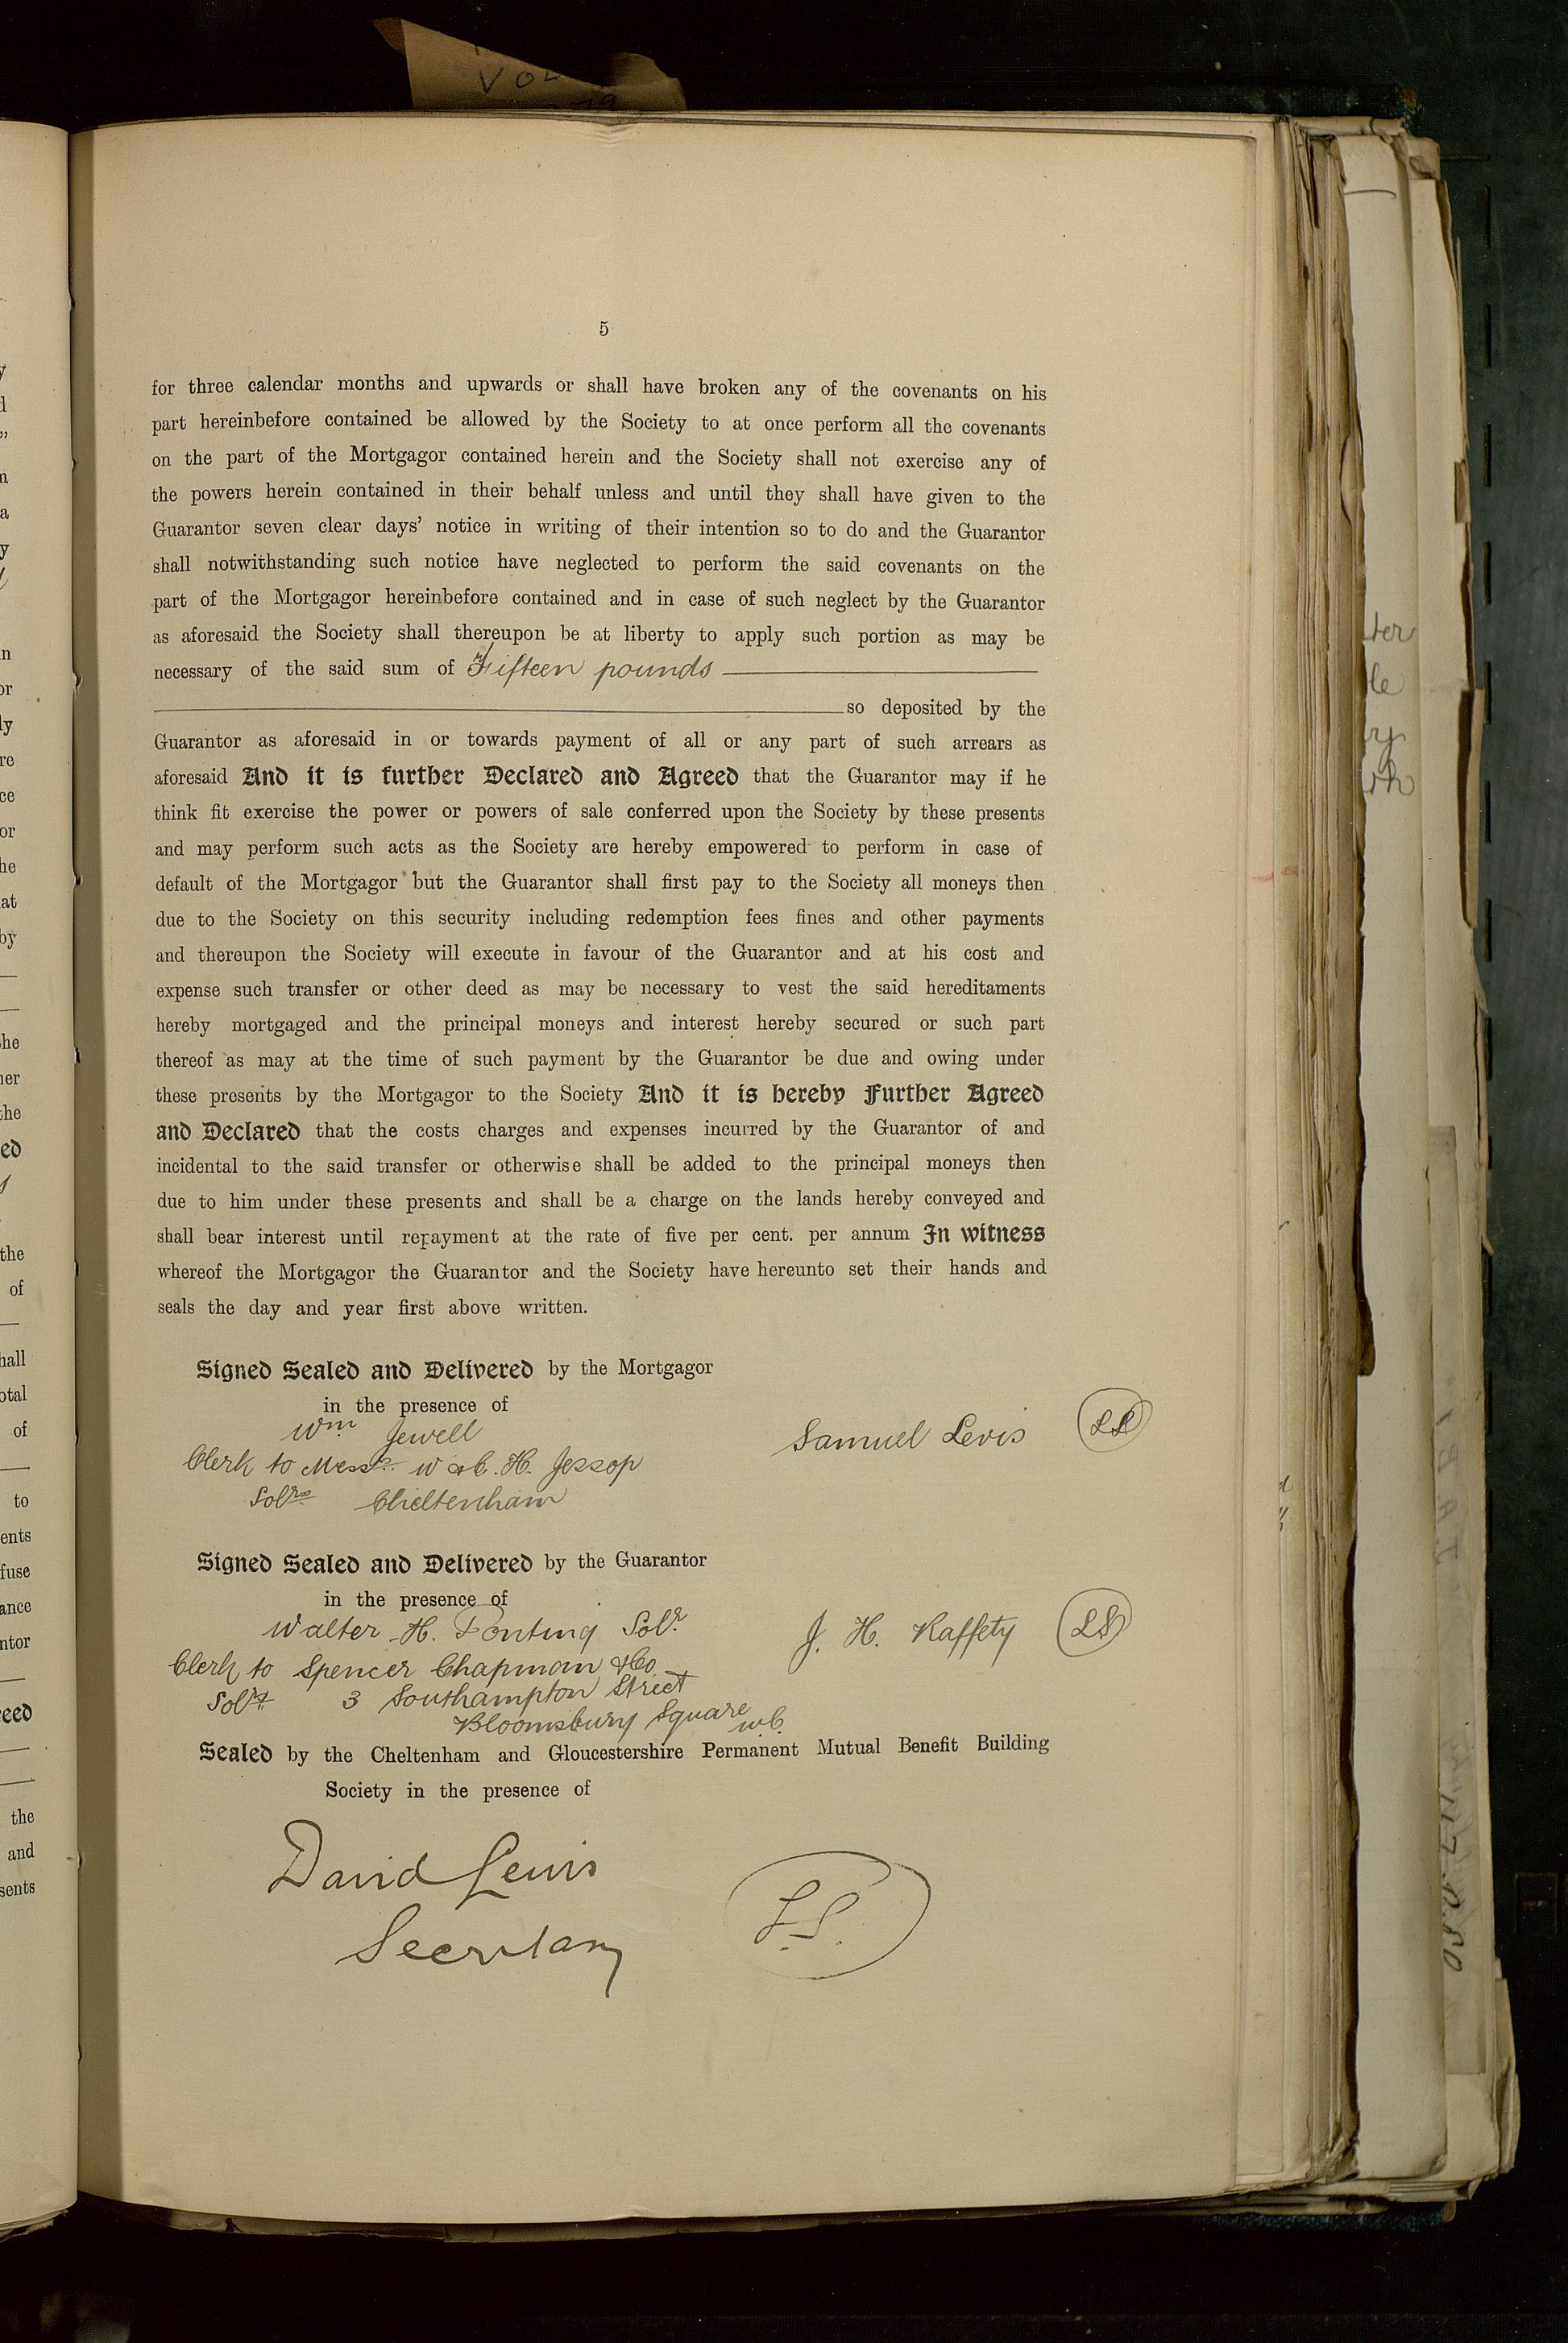 VOL
5
for three calendar months and upwards or shall have broken any of the covenants on his
part hereinbefore contained be allowed by the Society to at once perform all the covenants
on the part of the Mortgagor contained herein and the Society shall not exercise any of
the powers herein contained in their behalf unless and until they shall have given to the
Guarantor seven clear days' notice in writing of their intention so to do and the Guarantor
shall notwithstanding such notice have neglected to perform the said covenants on the
part of the Mortgagor hereinbefore contained and in case of such neglect by the Guarantor
as aforesaid the Society shall thereupon be at liberty to apply such portion as may be
necessary of the said sum of Fifteen pounds
so deposited by the
Guarantor as aforesaid in or towards payment of all or any part of such arrears as
aforesaid And it is further Declared and Agreed that the Guarantor may if he
think fit exercise the power or powers of sale conferred upon the Society by these presents
and may perform such acts as the Society are hereby empowered to perform in case of
default of the Mortgagor but the Guarantor shall first pay to the Society all moneys then
due to the Society on this security including redemption fees fines and other payments
and thereupon the Society will execute in favour of the Guarantor and at his cost and
expense such transfer or other deed as may be necessary to vest the said hereditaments
hereby mortgaged and the principal moneys and interest hereby secured or such part
thereof as may at the time of such payment by the Guarantor be due and owing under
these presents by the Mortgagor to the Society And it is hereby Further Agreed
and Declared that the costs charges and expenses incurred by the Guarantor of and
incidental to the said transfer or otherwise shall be added to the principal moneys then
due to him under these presents and shall be a charge on the lands hereby conveyed and
shall bear interest until repayment at the rate of five per cent. per annum In witness
whereof the Mortgagor the Guarantor and the Society have hereunto set their hands and
seals the day and year first above written.
Signed Sealed and Delivered by the Mortgagor
in the presence of
Wm Jewell
Clerk to Messrs W & C. H. Jessop
Solrs Cheltenham
Samuel Levis LS
Signed Sealed and Delivered by the Guarantor
in the presence of
Walter H. Ponting Solr
Clerk to Spencer Chapman & Co
Solrs 3 Southampton Street
Bloomsbury Square
W.C.
J. H. Raffety LS
Sealed by the Cheltenham and Gloucestershire Permanent Mutual Benefit Building
Society in the presence of
David Lewis
Secretary
L.S.